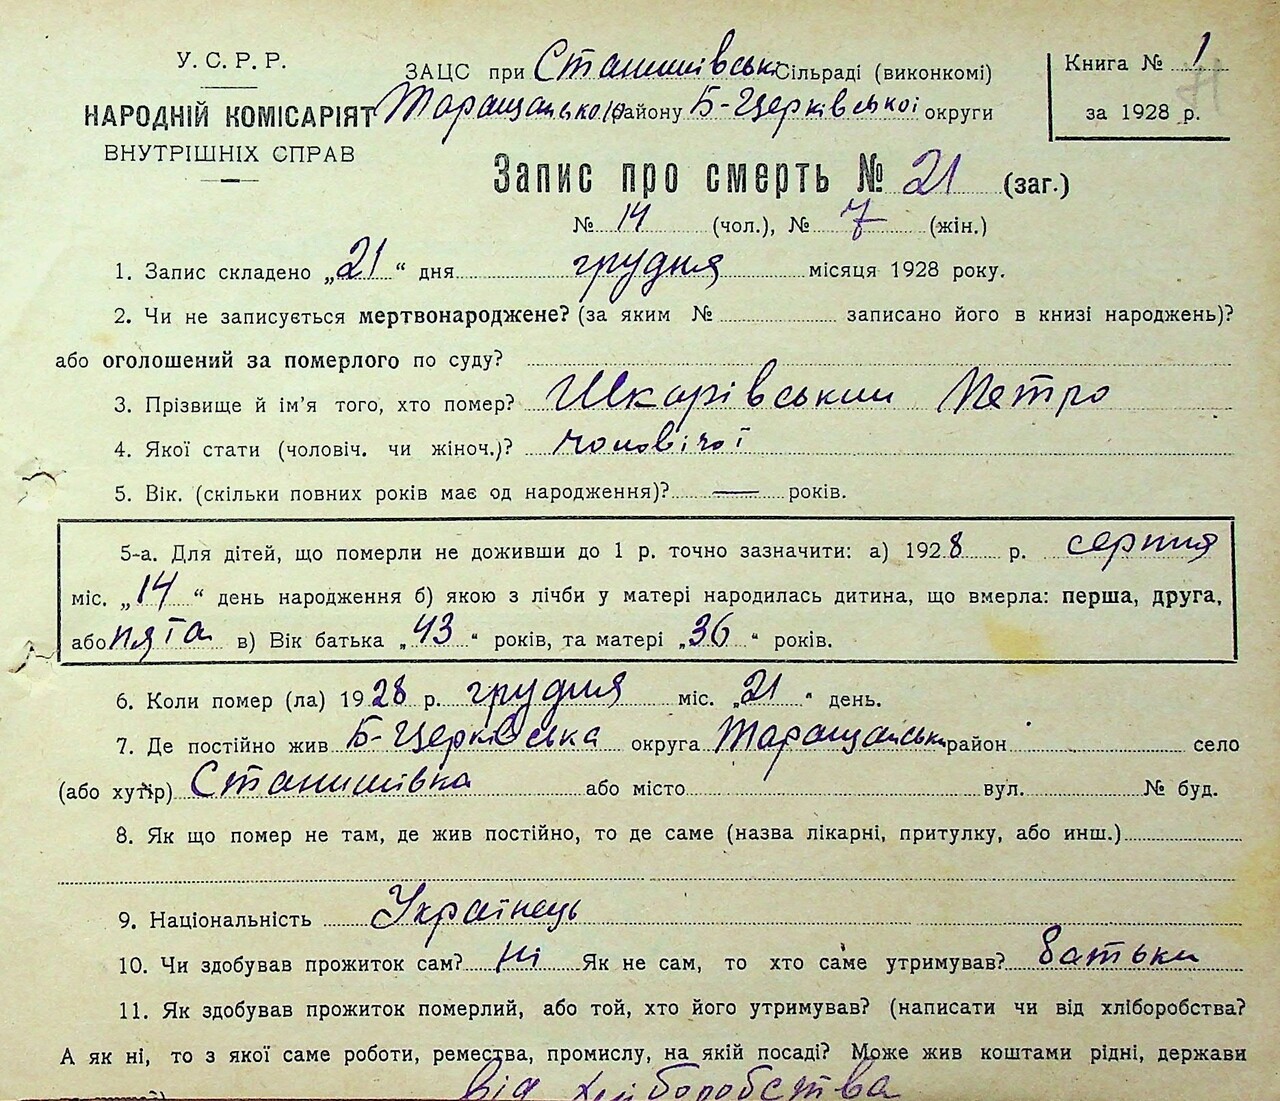 У. С. Р. Р.
НАРОДНІЙ КОМІСАРІЯТ
ВНУТРІШНІХ СПРАВ
ЗАЦС при Станишівські Сільраді (виконкомі)
Таращанського району Б-Церківської округи
Книга № 1
за 1928 р.
Запис про смерть № 21 (заг.)
№ 14 (чол.), № 7 (жін.)
1. Запис складено „21“ дня грудня місяця 1928 року.
2. Чи не записується мертвонароджене? (за яким № записано його в книзі народжень)?
або оголошений за померлого по суду?
3. Прізвище й ім'я того, хто помер? Шкарівський Петро
4. Якої стати (чоловіч. чи жіноч.)? чоловічої
5. Вік. (скільки повних років має од народження)? — років.
5-а. Для дітей, що померли не доживши до 1 р. точно зазначити: а) 1928 р. серпня
міс. „14“ день народження б) якою з лічби у матері народилась дитина, що вмерла: перша, друга,
або пята в) Вік батька „43“ років, та матері „36“ років.
6. Коли помер (ла) 1928 р. грудня міс. „21“ день.
7. Де постійно жив Б-Церківська округа Таращанськи район село
(або хутір) Станишівка або місто вул. № буд.
8. Як що помер не там, де жив постійно, то де саме (назва лікарні, притулку, або инш.)
9. Національність Українець
10. Чи здобував прожиток сам? Ні Як не сам, то хто саме утримував? батьки
11. Як здобував прожиток померлий, або той, хто його утримував? (написати чи від хліборобства?
А як ні, то з якої саме роботи, ремества, промислу, на якій посаді? Може жив коштами рідні, держави
від хліборобства